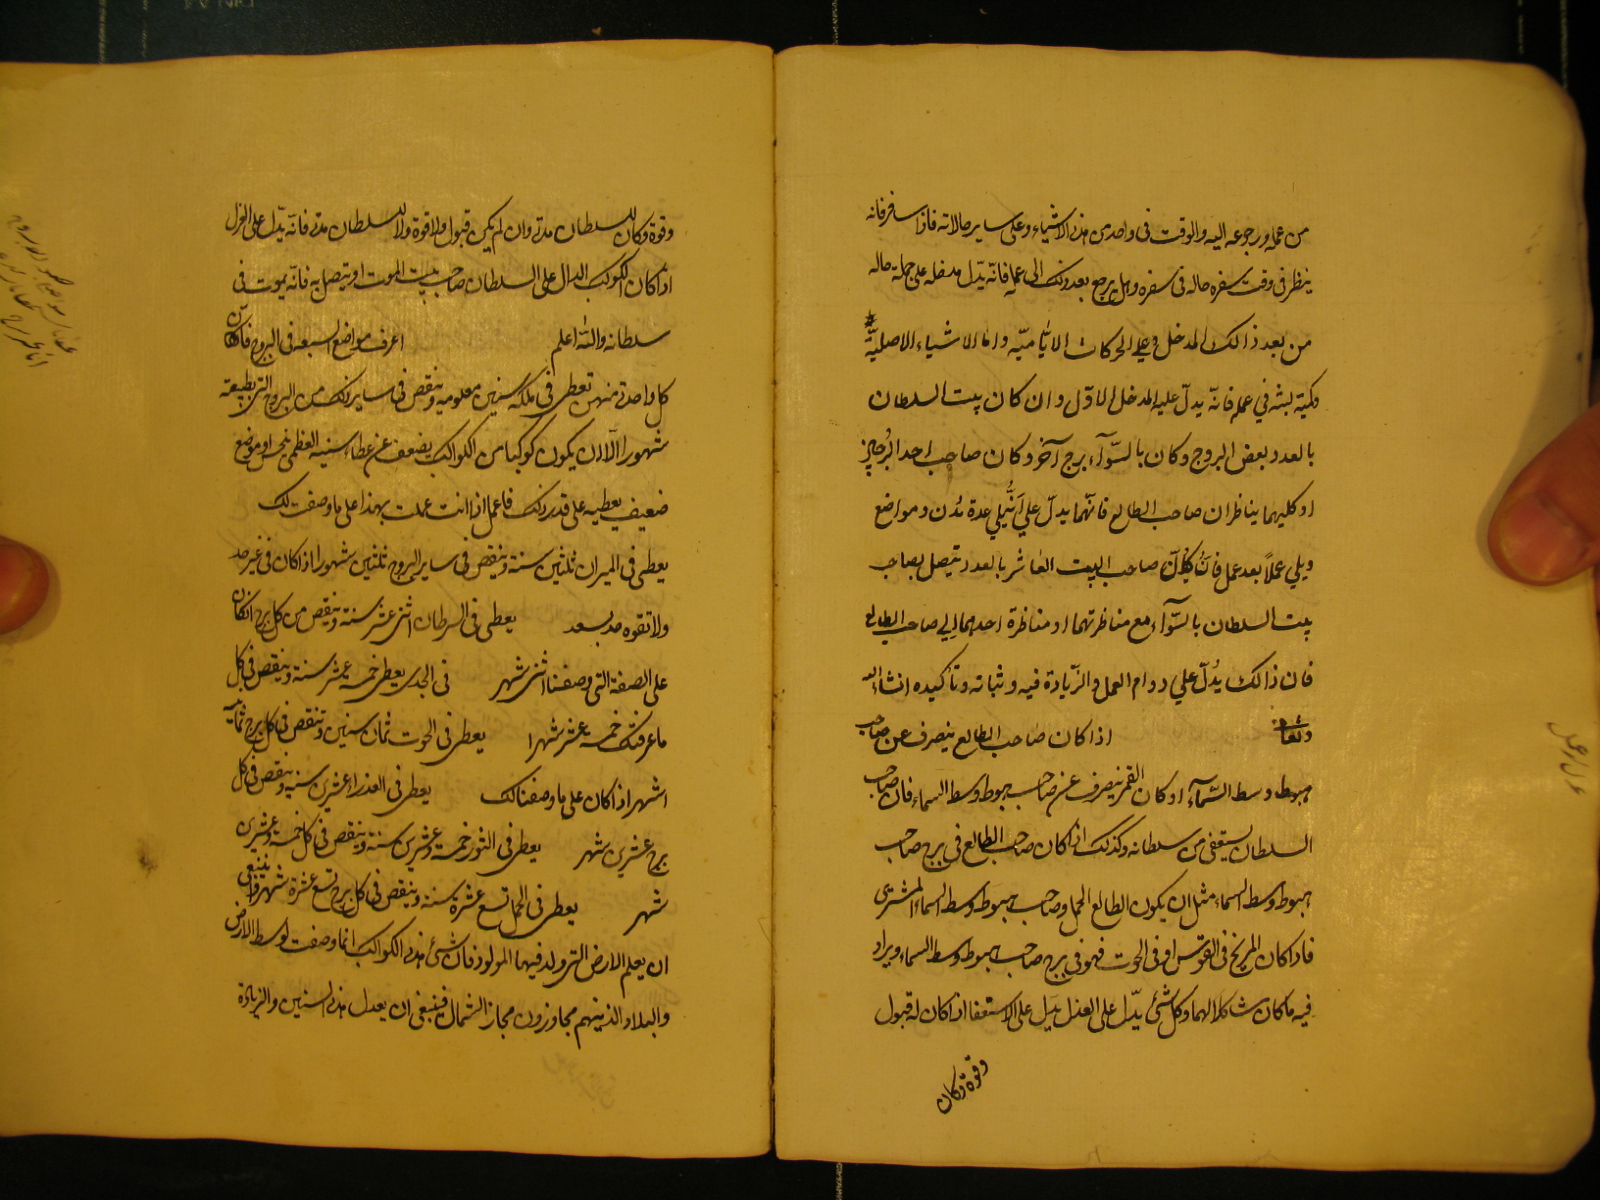 من عمله ورجوعه اليه والوقت فى واحد من هذه الاشياء وعلى ساير حالاته فاذا سافر فانه
ينظر فى وقت سفره حاله فى سفره وهل يرجع بعد ذلك الى عمله فانّه يدّل مدخله على جملة حاله
من بعد ذالك المدخل وعلى الحركات الايّاميّه واما الاشياء الاصليّة
وكميّة لبثه في عمله فانّه يدلّ عليه المدخل الاوّل وان كان بيت السلطان
بالعدد بعض البروج وكان بالسّوآء برج آخر وكان صاحب احد البُرجين
او كليهما يناظران صاحب الطالع فانّهما يدلّ علي اَنَّه يلي عدة مُدن ومواضع
ويلي عملاً بعد عمل فان كان صاحب البيت العاشر بالعدد يتصل بصاحب
بيت السلطان بالسّوآء مع مناظرتهما او مناظرة احدهما الي صاحب الطالع
فان ذالك يُدلّ علي دوام العمل والزّيادة فيه وثباته وتاكيده انشاء الله
وتعا اذا كان صاحب الطالع ينصرف عن صاحب
هبوط وسط السّمآء او كان القمر ينصرف عن صاحب هبوط وسط السماء فان صاحب
السلطان يستعفى من سلطانه وكذلك اذا كان صاحب الطالع فى برج صاحب
هبوط وسط السماء مثل ان يكون الطالع الحمل وصاحب هبوط وسط السماء المشترى
فاذا كان المريخ فى القوس او فى الحوت فهو فى برج صاحب هبوط وسط السماء ويراد
فيه ما كان مشاكلا لهما وكل شئ يدّل على العذل يدل على الاستعفا اذا كان له قبول
وقوة وكان
وقوة وكان للسلطان مدته وان لم يكن قبول ولا قوة ولا للسلطان مدته فانّه يدّل على العزل
اذا كان الكوكب الدال على السلطان صاحب بيت الموت او يتصل به فانّه يموت فى
سلطانه والله اعلم اعرف مواضع السبعه فى البروج فان
كل واحدة منهن تعطى فى ملكه سنين معلومه وينقص فى ساير ذلك من البروج التى بطبيعة
شهورا الا ان يكون كوكبا من الكواكب يضعف عن عطاء سنيه العظمى بنحس او موضع
ضعيف يعطيه على قدر ذلك فاعمل اذا انت عملت بهذا على ما وصفت لك
يعطى فى الميزان ثلثين سنة وينقص فى ساير البروج ثلثين شهورا اذا كان فى غير حد
ولا تقوه حد بسعد يعطى فى السرطان اثنى عشر سنة وينقص من كل برج اذا كان
على الصفة التى وصفنا اثنى شهر فى الجدى يعطى خمسة عشر سنة وينقص فى كل
ما عرفتك خمسة عشر شهرا يعطى فى الحوت ثمان سنين وتنقص فى كل برج ثمانية
اشهر اذا كان على ما وصفنا لك يعطى فى العذرا عشرين سنه وينقص فى كل
برج عشرين شهر يعطى فى الثور خمسة وعشرين سنة وينقص فى كل خمسة وعشرين
شهر يعطى فى الحمل تسع عشرة سنه وينقص فى كل برج تسع عشرة شهر وينبغى
ان يعلم الارض التى ولد فيها المولود فان شئ هذه الكواكب انما وصفت لوسط الارض
والبلاد الذينهم مجاوزون مجاز الشمال فينبغى ان يعدل هذه السنين والزيادة